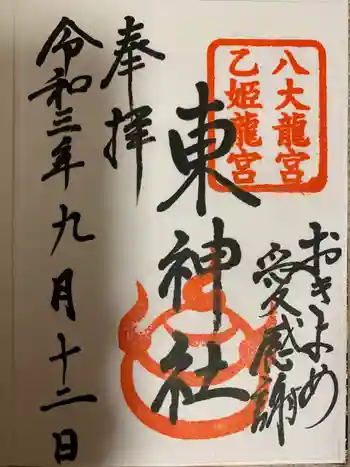 八大龍宮
乙姫龍宮
おきよめ
愛感謝
奉拝
東神社
令和三年九月十二日